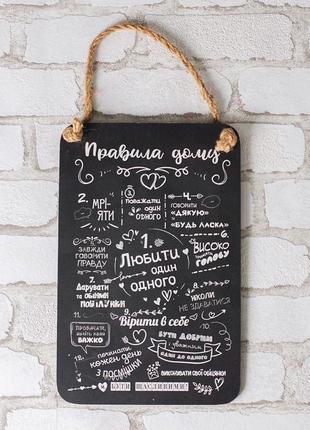 Правила дому
2.
МРІ-
ЯТИ
3.
поважати
один
одного
4.
ГОВОРИТИ
«ДЯКУЮ»
ТА
«БУДЬ ЛАСКА»
5.
ЗАВЖДИ
ГОВОРИТИ
ПРАВДУ
1.
Любити
один
одного
6.
ВИСОКО
ГОЛОВУ
7.
Дарувати
та обійми
ПОЦІЛУНКИ
НІКОЛИ
НЕ ЗДАВАТИСЯ
9.
Вірити в себе
10.
БУТИ ДОБРИМ
і уважним
один до одного
11.
Пробачати,
навіть коли
ВАЖКО
12.
починати
кожен день
з посмішки
виконувати свої обіцянки
БУТИ ЩАСЛИВИМИ!